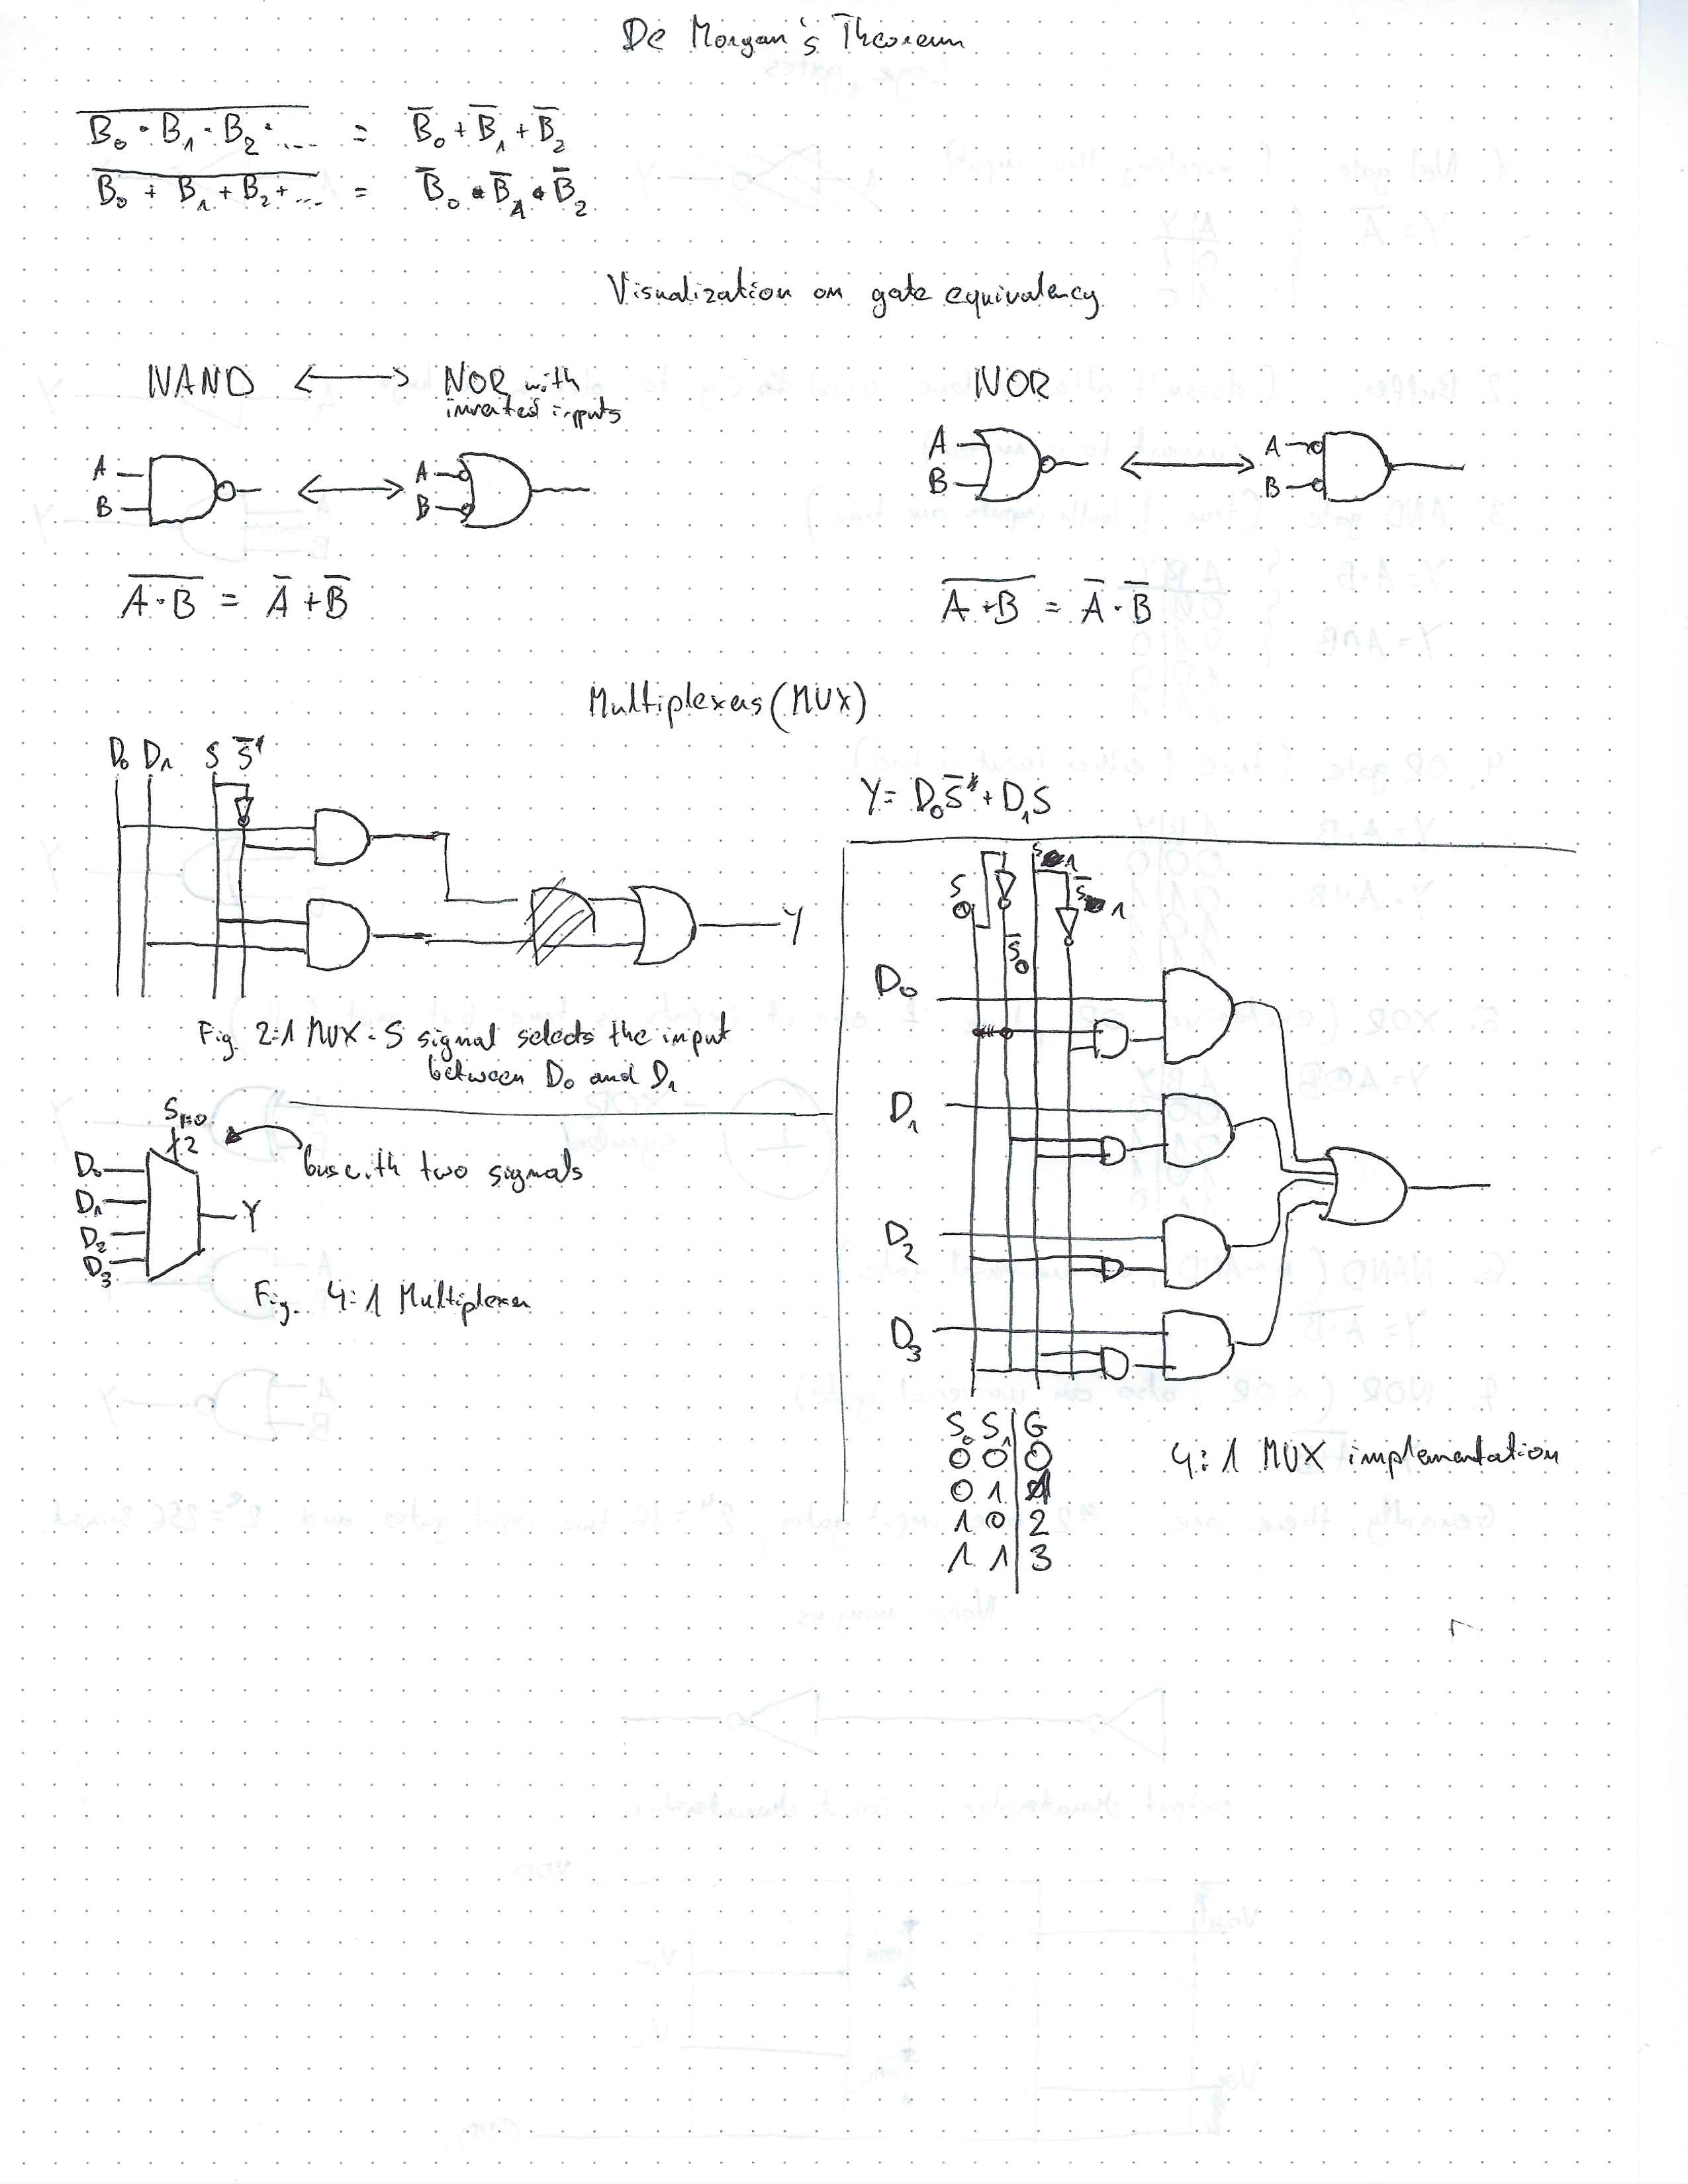 De Morgan's Theorem
B₀ · B₁ · B₂ · ... = B̅₀ + B̅₁ + B̅₂
B₀ + B₁ + B₂ + ... = B̅₀ · B̅₁ · B̅₂
Visualization on gate equivalency
NAND <--> NOR with
inverted inputs
NOR
A
B
A
B
A
B
A
B
A̅·̅B̅ = A̅ + B̅
A̅+̅B̅ = A̅ · B̅
Multiplexers (MUX)
D₀ D₁ S S̅
Y = D₀S̅ + D₁S
Y
Fig. 2:1 MUX - S signal selects the input
between D₀ and D₁
S₁:₀
2
bus with two signals
D₀
D₁
D₂
D₃
Y
Fig. 4:1 Multiplexer
S₀
S̅₀
S₁
S̅₁
D₀
D₁
D₂
D₃
S₀ S₁ | G
0 0 | 0
0 1 | 1
1 0 | 2
1 1 | 3
4:1 MUX implementation